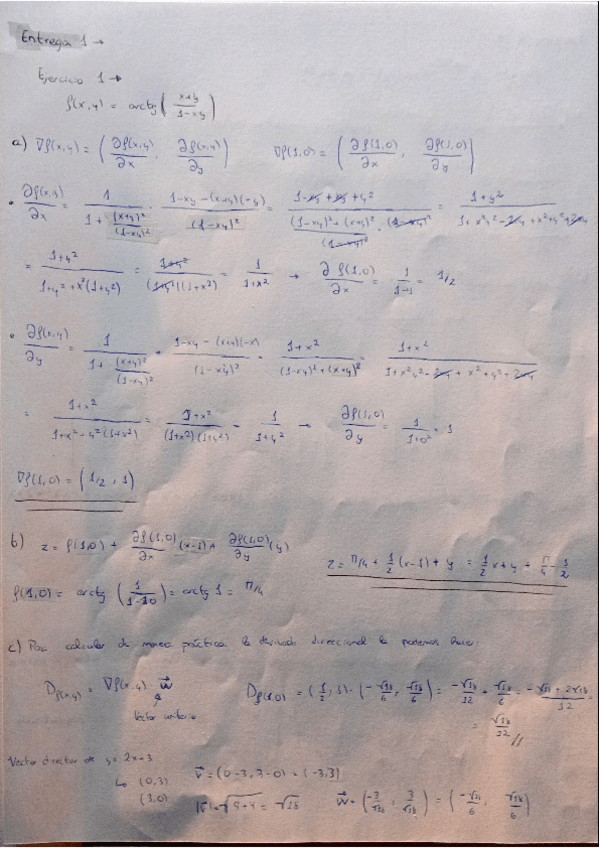 Entrega 1 →
Ejercicio 1 →
f(x,y) = arctg ( (x+y)/(1-xy) )
a) ∇f(x,y) = ( ∂f(x,y)/∂x , ∂f(x,y)/∂y )    ∇f(1,0) = ( ∂f(1,0)/∂x , ∂f(1,0)/∂y )
• ∂f(x,y)/∂x = 1/(1 + (x+y)²/(1-xy)²) · (1-xy-(x+y)(-y))/(1-xy)² = (1-xy+xy+y²)/(((1-xy)²+(x+y)²)/(1-xy)² · (1-xy)²) = (1+y²)/(1+x²y²-2xy+x²+y²+2xy)
= (1+y²)/(1+y²+x²(1+y²)) = (1+y²)/((1+y²)(1+x²)) = 1/(1+x²) → ∂f(1,0)/∂x = 1/(1+1) = 1/2
• ∂f(x,y)/∂y = 1/(1 + (x+y)²/(1-xy)²) · (1-xy-(x+y)(-x))/(1-xy)² = (1+x²)/((1-xy)²+(x+y)²) = (1+x²)/(1+x²y²-2xy+x²+y²+2xy)
= (1+x²)/(1+x²-y²(1+x²)) = (1+x²)/((1+x²)(1+y²)) = 1/(1+y²) → ∂f(1,0)/∂y = 1/(1+0²) = 1
∇f(1,0) = (1/2, 1)
b) z = f(1,0) + ∂f(1,0)/∂x (x-1) + ∂f(1,0)/∂y (y)
z = π/4 + 1/2 (x-1) + y = 1/2 x + y + π/4 - 1/2
f(1,0) = arctg ( 1/(1-1·0) ) = arctg 1 = π/4
c) Para calcular de manera práctica la derivada direccional la podemos hacer:
Df(x,y) = ∇f(x,y) · w⃗    Df(1,0) = (1/2, 1) · (-√18/6, √18/6) = -√18/12 + √18/6 = (-√18 + 2√18)/12 =
vector unitario
= √18/12 //
Vector director de y = 2x+3    v⃗ = (0-3, 3-0) = (-3,3)
↳ (0,3)
(3,0)    |v⃗| = √(9+9) = √18    w⃗ = (-3/√18, 3/√18) = (-√18/6, √18/6)